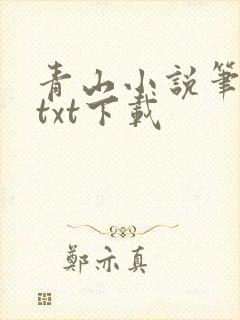 青山小説筆
txt下載
鄭亦真